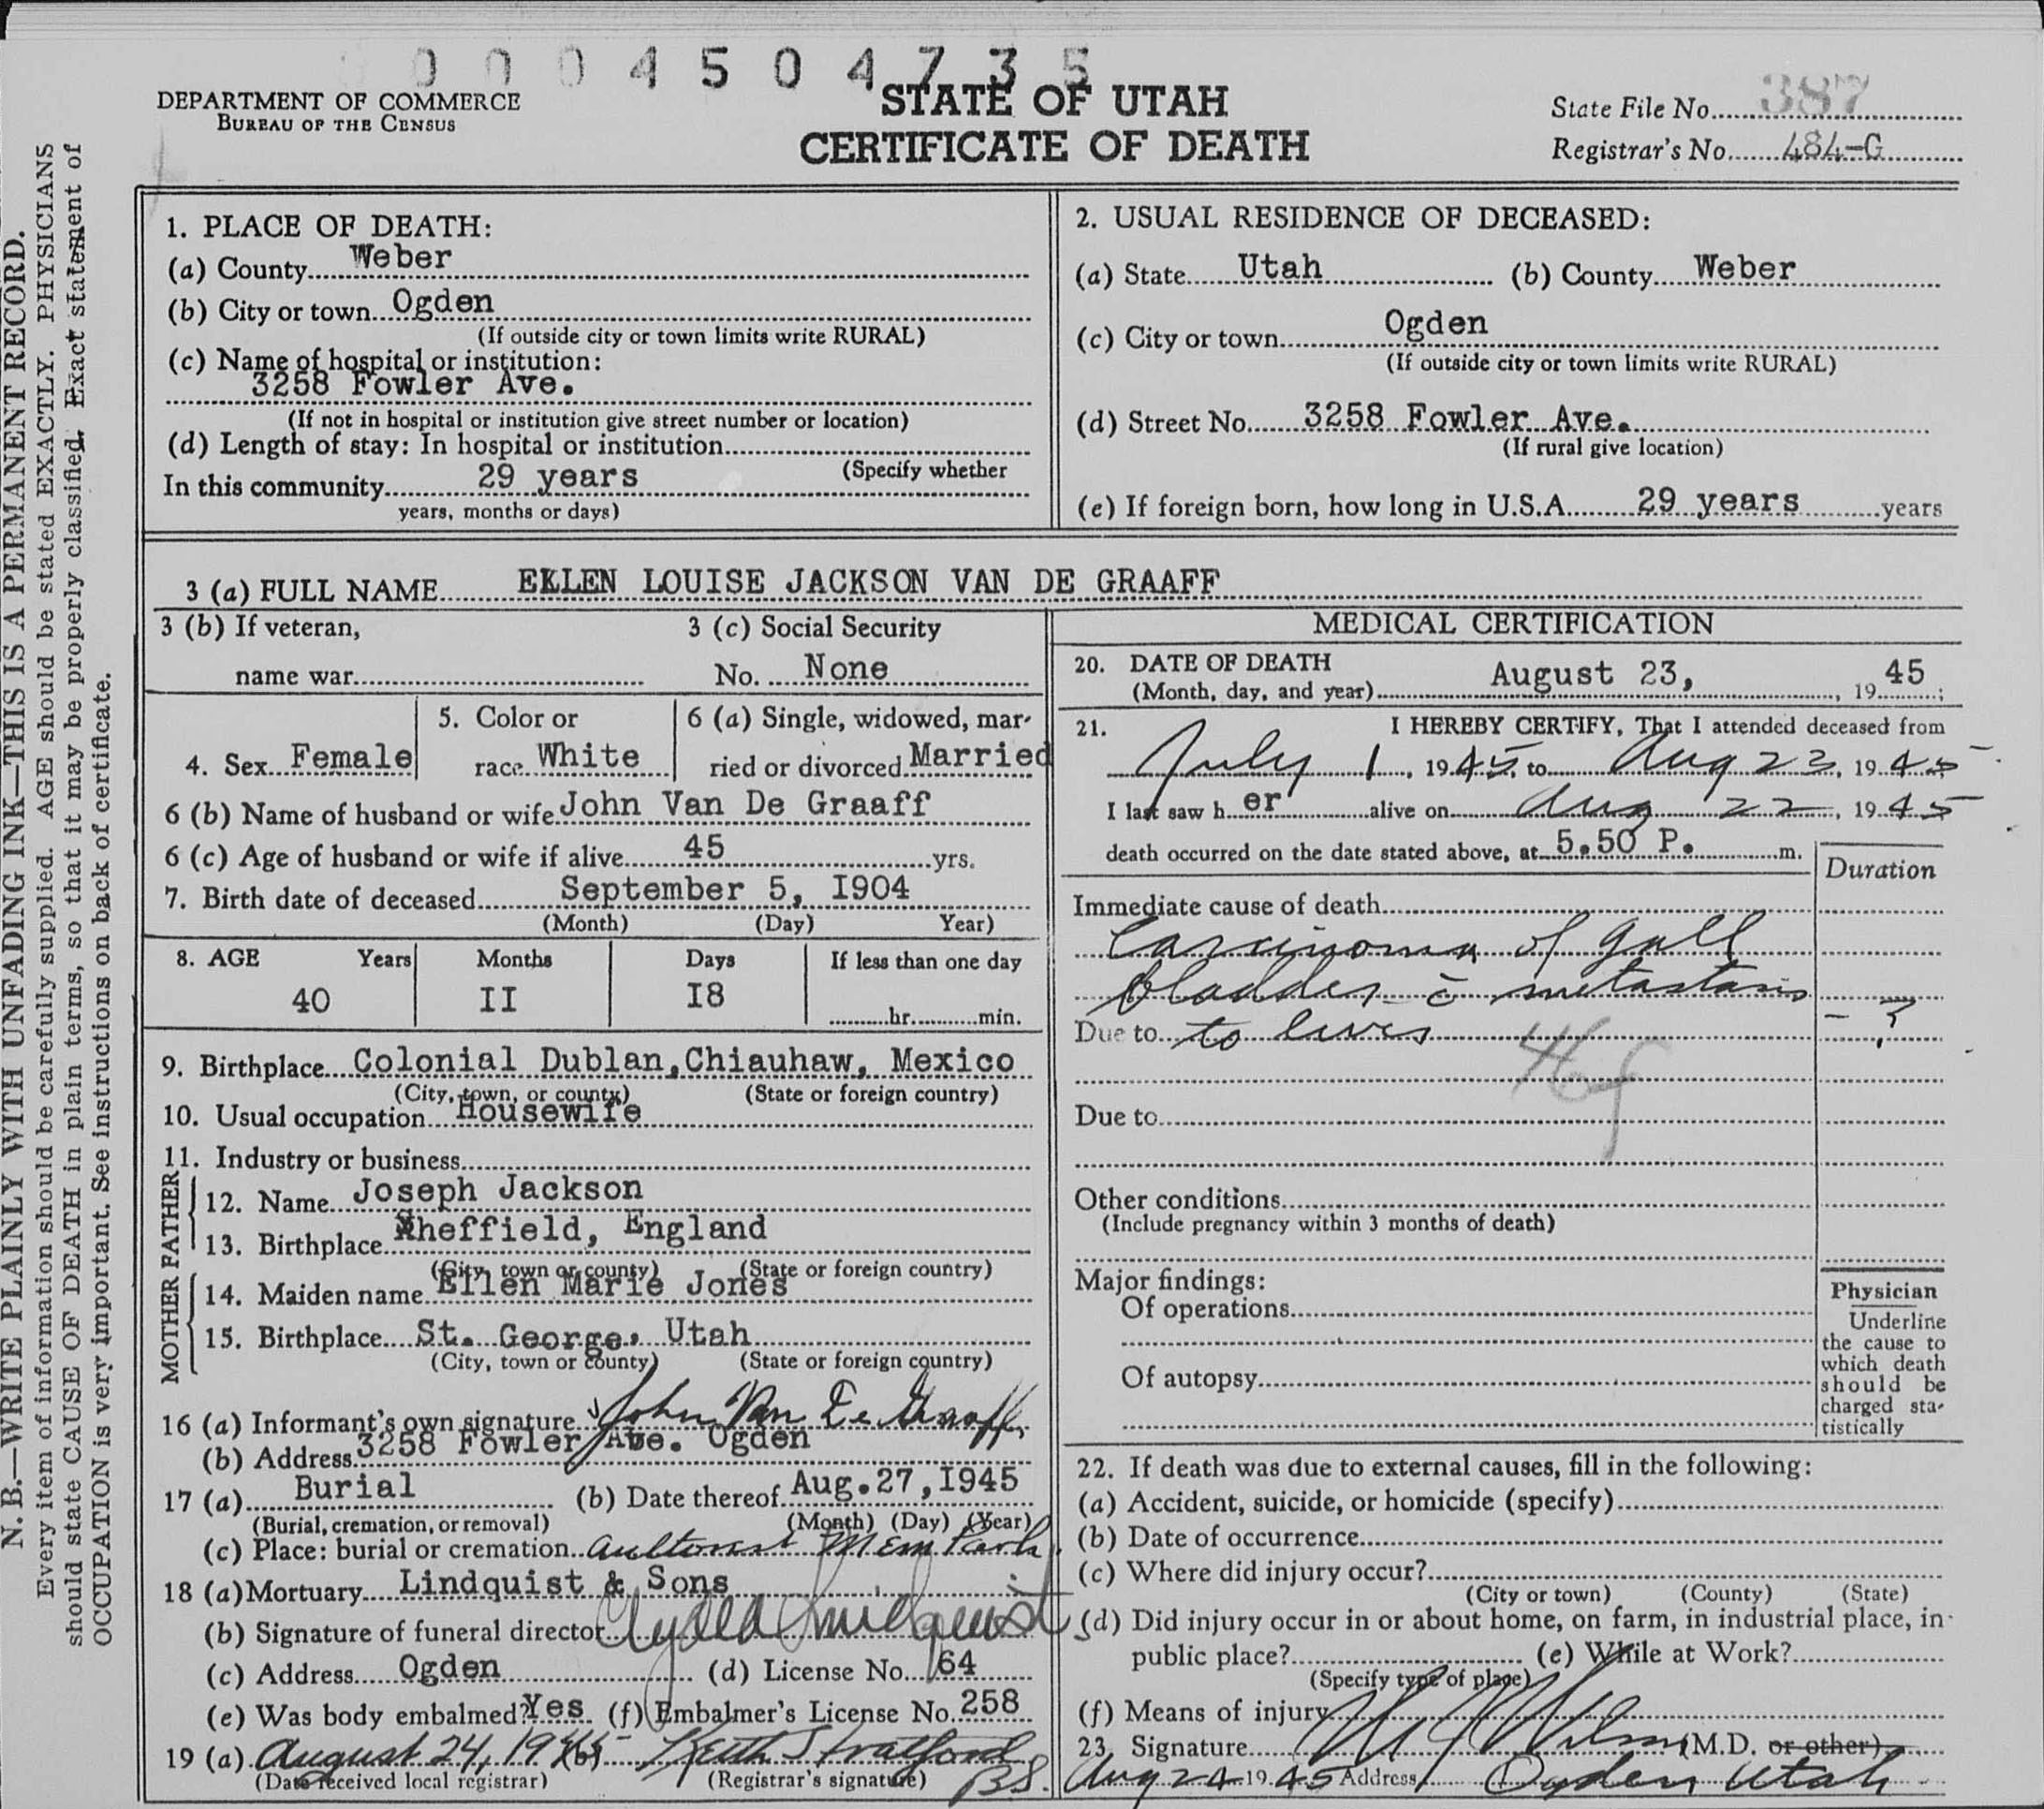 0 0 0 4 5 0 4 7 3 5
DEPARTMENT OF COMMERCE
BUREAU OF THE CENSUS
STATE OF UTAH
CERTIFICATE OF DEATH
State File No. 387
Registrar's No. 484-G
N. B.—WRITE PLAINLY WITH UNFADING INK—THIS IS A PERMANENT RECORD.
Every item of information should be carefully supplied. AGE should be stated EXACTLY. PHYSICIANS
should state CAUSE OF DEATH in plain terms, so that it may be properly classified. Exact statement of
OCCUPATION is very important. See instructions on back of certificate.
1. PLACE OF DEATH:
(a) County Weber
(b) City or town Ogden
(If outside city or town limits write RURAL)
(c) Name of hospital or institution:
3258 Fowler Ave.
(If not in hospital or institution give street number or location)
(d) Length of stay: In hospital or institution
(Specify whether
In this community 29 years
years, months or days)
2. USUAL RESIDENCE OF DECEASED:
(a) State Utah (b) County Weber
(c) City or town Ogden
(If outside city or town limits write RURAL)
(d) Street No. 3258 Fowler Ave.
(If rural give location)
(e) If foreign born, how long in U.S.A. 29 years years
3 (a) FULL NAME ELLEN LOUISE JACKSON VAN DE GRAAFF
3 (b) If veteran,
name war
3 (c) Social Security
No. None
4. Sex Female
5. Color or
race White
6 (a) Single, widowed, mar-
ried or divorced Married
6 (b) Name of husband or wife John Van De Graaff
6 (c) Age of husband or wife if alive 45 yrs.
7. Birth date of deceased September 5, I904
(Month) (Day) Year)
8. AGE Years Months Days If less than one day
40 II I8 hr. min.
9. Birthplace Colonial Dublan, Chiauhaw, Mexico
(City, town, or county) (State or foreign country)
10. Usual occupation Housewife
11. Industry or business
FATHER
12. Name Joseph Jackson
13. Birthplace Sheffield, England
(City, town or county) (State or foreign country)
MOTHER
14. Maiden name Ellen Marie Jones
15. Birthplace St. George, Utah
(City, town or county) (State or foreign country)
16 (a) Informant's own signature John Van De Graaff
(b) Address 3258 Fowler Ave. Ogden
17 (a) Burial (b) Date thereof Aug.27,I945
(Burial, cremation, or removal) (Month) (Day) (Year)
(c) Place: burial or cremation Aultorest Mem Park
18 (a) Mortuary Lindquist & Sons
(b) Signature of funeral director Clyde Lindquist
(c) Address Ogden (d) License No. 164
(e) Was body embalmed? Yes (f) Embalmer's License No. 258
19 (a) August 24, 1945 (b) Keith Stratford
(Date received local registrar) (Registrar's signature) BS.
MEDICAL CERTIFICATION
20. DATE OF DEATH
(Month, day, and year) August 23, , 19 45 ;
21. I HEREBY CERTIFY, That I attended deceased from
July 1, 1945, to Aug 23, 1945
I last saw her alive on Aug 22, 1945
death occurred on the date stated above, at 5.50 P. m.
Duration
Immediate cause of death
Carcinoma of gall
bladder c̄ metastasis
Due to to liver - ?
46f
Due to
Other conditions
(Include pregnancy within 3 months of death)
Major findings:
Of operations
Of autopsy
Physician
Underline
the cause to
which death
should be
charged sta-
tistically
22. If death was due to external causes, fill in the following:
(a) Accident, suicide, or homicide (specify)
(b) Date of occurrence
(c) Where did injury occur?
(City or town) (County) (State)
(d) Did injury occur in or about home, on farm, in industrial place, in
public place? (e) While at Work?
(Specify type of place)
(f) Means of injury
23. Signature Wilson (M.D. or other)
Aug 24 1945 Address Ogden Utah